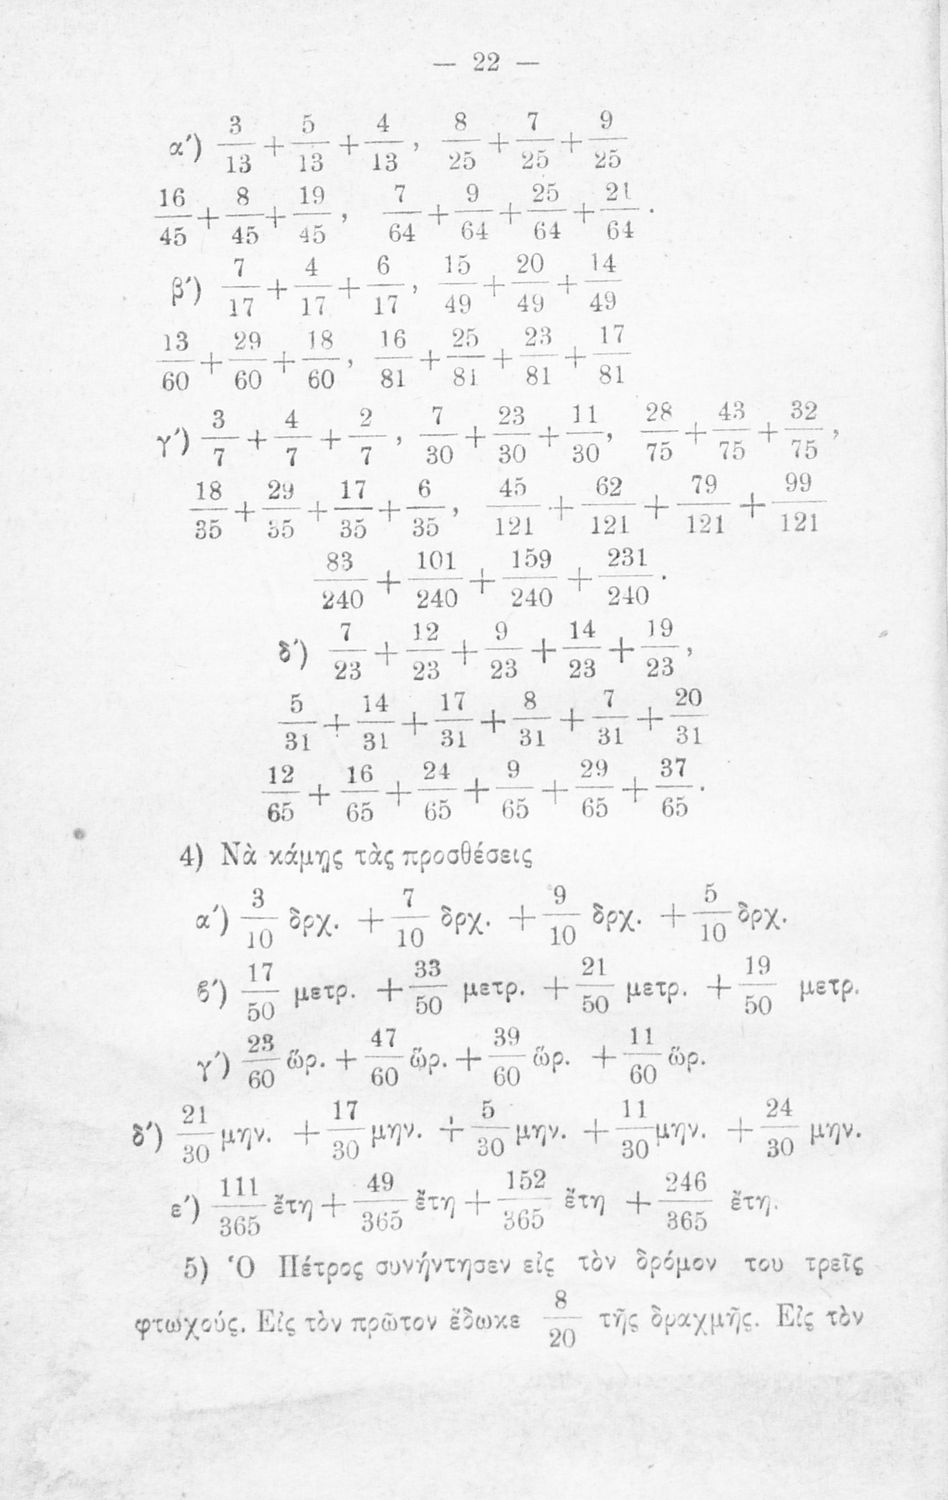 — 22 —
α′) 3/13 + 5/13 + 4/13 , 8/25 + 7/25 + 9/25
16/45 + 8/45 + 19/45 , 7/64 + 9/64 + 25/64 + 21/64 .
β′) 7/17 + 4/17 + 6/17 , 15/49 + 20/49 + 14/49
13/60 + 29/60 + 18/60 , 16/81 + 25/81 + 23/81 + 17/81
γ′) 3/7 + 4/7 + 2/7 , 7/30 + 23/30 + 11/30 , 28/75 + 43/75 + 32/75 ,
18/35 + 29/35 + 17/35 + 6/35 , 45/121 + 62/121 + 79/121 + 99/121
83/240 + 101/240 + 159/240 + 231/240 .
δ′) 7/23 + 12/23 + 9/23 + 14/23 + 19/23 ,
5/31 + 14/31 + 17/31 + 8/31 + 7/31 + 20/31
12/65 + 16/65 + 24/65 + 9/65 + 29/65 + 37/65 .
4) Νὰ κάμῃς τὰς προσθέσεις
α′) 3/10 δρχ. + 7/10 δρχ. + 9/10 δρχ. + 5/10 δρχ.
ϐ′) 17/50 μετρ. + 33/50 μετρ. + 21/50 μετρ. + 19/50 μετρ.
γ′) 23/60 ὥρ. + 47/60 ὥρ. + 39/60 ὥρ. + 11/60 ὥρ.
δ′) 21/30 μην. + 17/30 μην. + 5/30 μην. + 11/30 μην. + 24/30 μην.
ε′) 111/365 ἔτη + 49/365 ἔτη + 152/365 ἔτη + 246/365 ἔτη.
5) Ὁ Πέτρος συνήντησεν εἰς τὸν δρόμον του τρεῖς
φτωχούς. Εἰς τὸν πρῶτον ἔδωκε 8/20 τῆς δραχμῆς. Εἰς τὸν